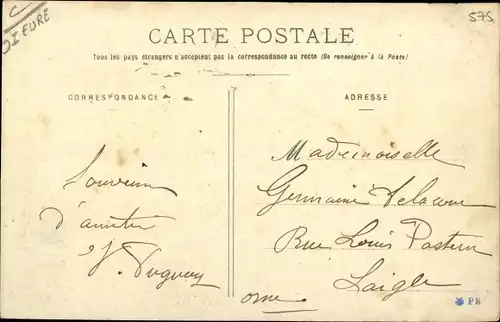 C
DIEURE
575
CARTE POSTALE
Tous les pays étrangers n'acceptent pas la correspondance au recto (Se renseigner à la Poste)
CORRESPONDANCE
ADRESSE
Souvenir
d'amitié
Mademoiselle
Germaine
Rue Louis Pasteur
Laigle
Orne
PB